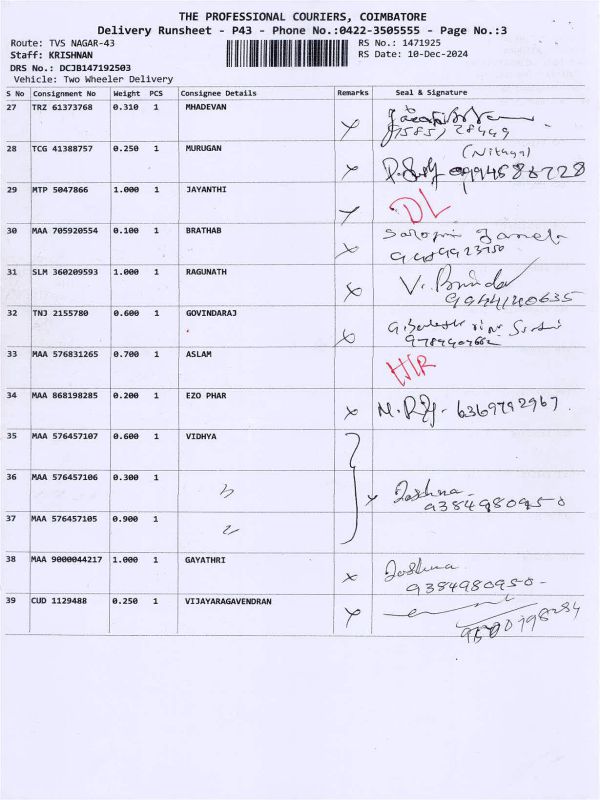 THE PROFESSIONAL COURIERS, COIMBATORE
Delivery Runsheet - P43 - Phone No.:0422-3505555 - Page No.:3
Route: TVS NAGAR-43 RS No.: 1471925
Staff: KRISHNAN RS Date: 10-Dec-2024
DRS No.: DCJB147192503
Vehicle: Two Wheeler Delivery
S No Consignment No Weight PCS Consignee Details Remarks Seal & Signature
27 TRZ 61373768 0.310 1 MHADEVAN
28 TCG 41388757 0.250 1 MURUGAN (Nithya)
29 MTP 5047866 1.000 1 JAYANTHI DL
30 MAA 705920554 0.100 1 BRATHAB
31 SLM 360209593 1.000 1 RAGUNATH
9944140635
32 TNJ 2155780 0.600 1 GOVINDARAJ
33 MAA 576831265 0.700 1 ASLAM
34 MAA 868198285 0.200 1 EZO PHAR 6369792967
35 MAA 576457107 0.600 1 VIDHYA
36 MAA 576457106 0.300 1 Joshna
9384980950
37 MAA 576457105 0.900 1
38 MAA 9000044217 1.000 1 GAYATHRI Joshna
9384980950
39 CUD 1129488 0.250 1 VIJAYARAGAVENDRAN